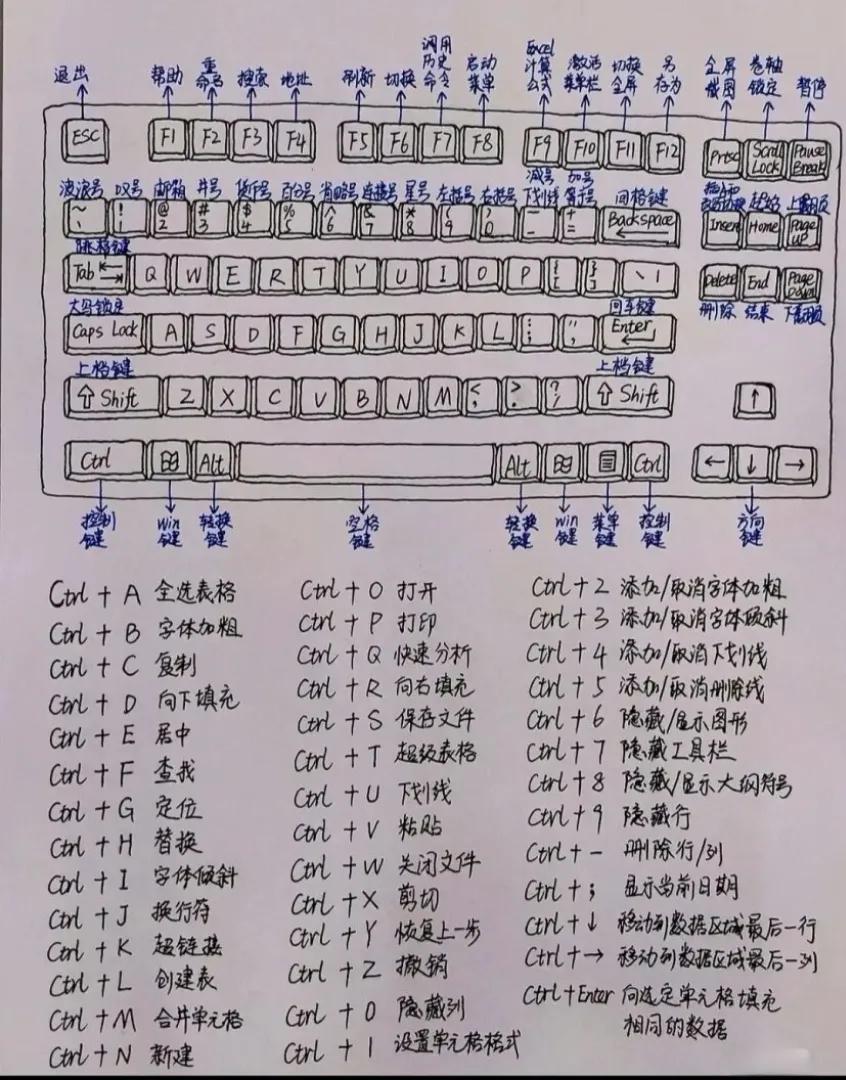 退出 帮助 重命名 搜索 地址 刷新 切换 调用历史命令 启动菜单 Excel计算公式 激活菜单栏 切换全屏 另存为 全屏截图 卷轴锁定 暂停
ESC F1 F2 F3 F4 F5 F6 F7 F8 F9 F10 F11 F12 Prtsc Scroll Lock Pause Break
波浪号 叹号 邮箱 井号 货币号 百分号 省略号 连接号 星号 左括号 右括号 减号下划线 加号等号 回格键 起始 上翻页
~ 、 ! 1 @ 2 # 3 $ 4 % 5 ^ 6 & 7 * 8 ( 9 ) 0 — - + = Backspace Insert Home Page UP
跳格键
Tab Q W E R T Y U I O P { [ } ] \ | Delete End Page Down
大写锁定 回车键 删除 结束 下翻页
Caps Lock A S D F G H J K L : ; " , Enter
上档键 上档键
⇧ Shift Z X C V B N M < , > . ? / ⇧ Shift ↑
Ctrl Alt Alt Ctrl ← ↓ →
控制键 win键 转换键 空格键 转换键 win键 菜单键 控制键 方向键
Ctrl + A 全选表格
Ctrl + B 字体加粗
Ctrl + C 复制
Ctrl + D 向下填充
Ctrl + E 居中
Ctrl + F 查找
Ctrl + G 定位
Ctrl + H 替换
Ctrl + I 字体倾斜
Ctrl + J 换行符
Ctrl + K 超链接
Ctrl + L 创建表
Ctrl + M 合并单元格
Ctrl + N 新建
Ctrl + O 打开
Ctrl + P 打印
Ctrl + Q 快速分析
Ctrl + R 向右填充
Ctrl + S 保存文件
Ctrl + T 超级表格
Ctrl + U 下划线
Ctrl + V 粘贴
Ctrl + W 关闭文件
Ctrl + X 剪切
Ctrl + Y 恢复上一步
Ctrl + Z 撤销
Ctrl + 0 隐藏列
Ctrl + 1 设置单元格格式
Ctrl + 2 添加/取消字体加粗
Ctrl + 3 添加/取消字体倾斜
Ctrl + 4 添加/取消下划线
Ctrl + 5 添加/取消删除线
Ctrl + 6 隐藏/显示图形
Ctrl + 7 隐藏工具栏
Ctrl + 8 隐藏/显示大纲符号
Ctrl + 9 隐藏行
Ctrl + - 删除行/列
Ctrl + ; 显示当前日期
Ctrl + ↓ 移动到数据区域最后一行
Ctrl + → 移动到数据区域最后一列
Ctrl + Enter 向选定单元格填充
相同的数据